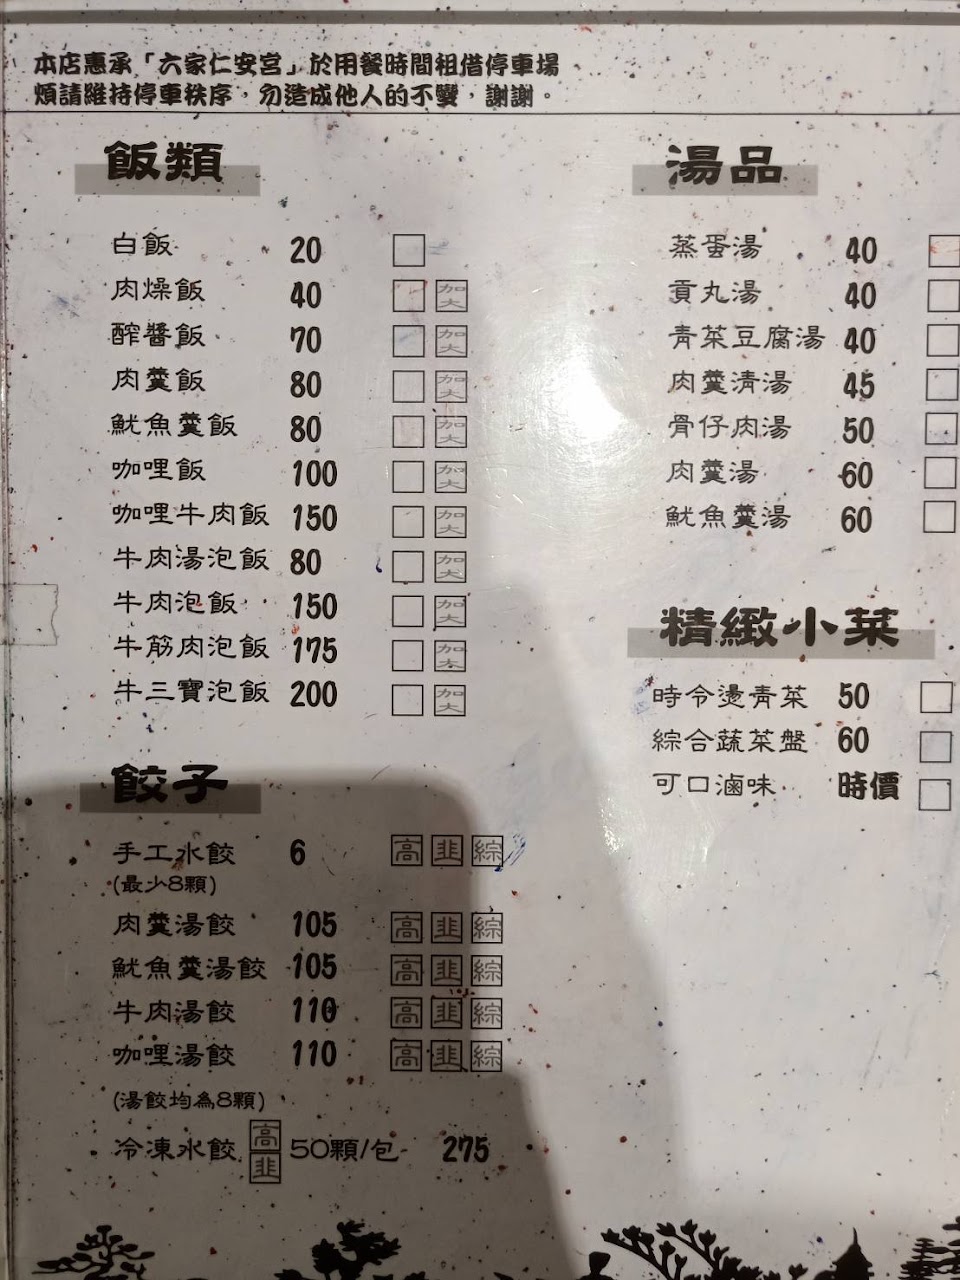 本店惠承「六家仁安宮」於用餐時間租借停車場
煩請維持停車秩序，勿造成他人的不變，謝謝。
飯類
白飯 20
肉燥飯 40 加大
醡醬飯 70 加大
肉羹飯 80 加大
魷魚羹飯 80 加大
咖哩飯 100 加大
咖哩牛肉飯 150 加大
牛肉湯泡飯 80 加大
牛肉泡飯 150 加大
牛筋肉泡飯 175 加大
牛三寶泡飯 200 加大
餃子
手工水餃 6 高 韭 綜
(最少8顆)
肉羹湯餃 105 高 韭 綜
魷魚羹湯餃 105 高 韭 綜
牛肉湯餃 110 高 韭 綜
咖哩湯餃 110 高 韭 綜
(湯餃均為8顆)
冷凍水餃 高 韭 50顆/包 275
湯品
蒸蛋湯 40
貢丸湯 40
青菜豆腐湯 40
肉羹清湯 45
骨仔肉湯 50
肉羹湯 60
魷魚羹湯 60
精緻小菜
時令燙青菜 50
綜合蔬菜盤 60
可口滷味 時價